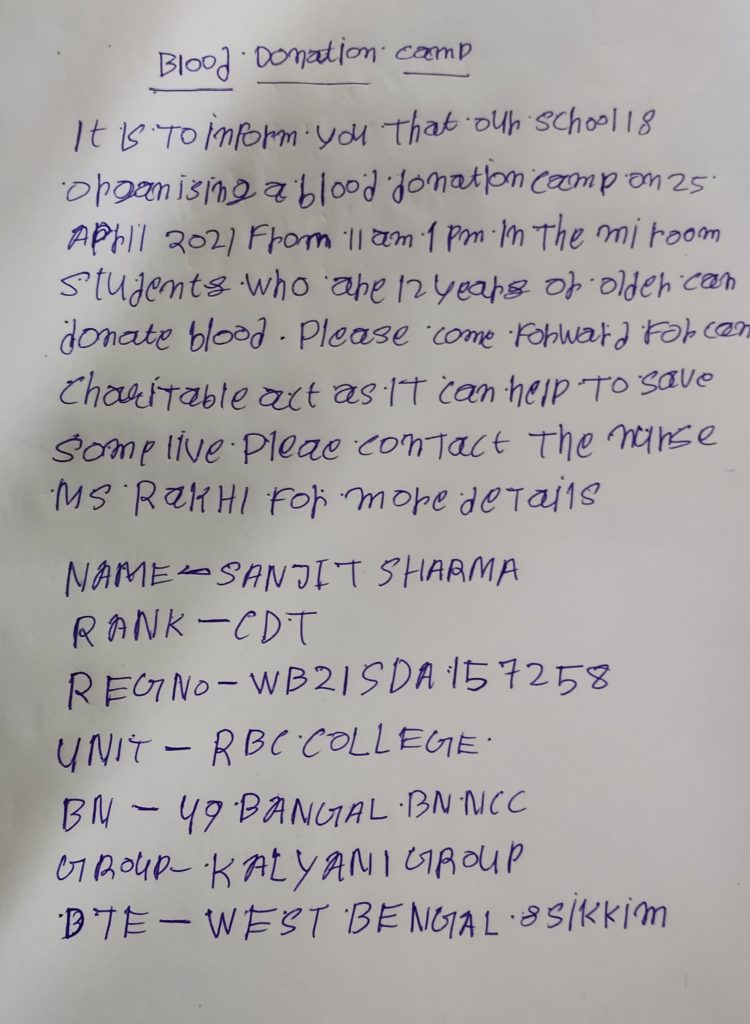 Blood Donation camp
It is To inform you That our school is
organising a blood donation camp on 25
April 2021 From 11 am 1 pm In The mi room
students who are 12 years or older can
donate blood. Please come forward For can
Charitable act as IT can help To save
some live Pleae contact The nurse
MS RAKHI For more details
NAME - SANJIT SHARMA
RANK - CDT
REGNo - WB21SDA157258
UNIT - RBC COLLEGE
BN - 49 BANGAL BN NCC
GROUP - KALYANI GROUP
DTE - WEST BENGAL & Sikkim